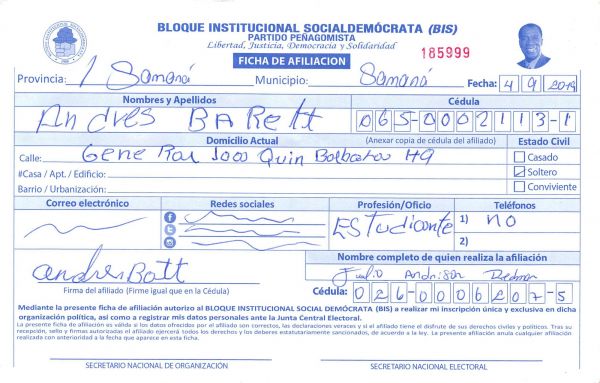 BLOQUE INSTITUCIONAL SOCIALDEMÓCRATA (BIS)
PARTIDO PEÑAGOMISTA
Libertad, Justicia, Democracia y Solidaridad
FICHA DE AFILIACION
185999
Provincia: Samaná Municipio: Samaná Fecha: 4 9 2019
Nombres y Apellidos Cédula
Andrés BARett 065-0002113-1
Domicilio Actual (Anexar copia de cédula del afiliado) Estado Civil
Calle: GeneRal Joao Quin H9 Casado
#Casa / Apt. / Edificio: Soltero
Barrio / Urbanización: Conviviente
Correo electrónico Redes sociales Profesión/Oficio Teléfonos
EStudiante 1) NO
2)
Nombre completo de quien realiza la afiliación
andres Batt
Julio
Firma del afiliado (Firme igual que en la Cédula) Cédula: 026-0006207-5
Mediante la presente ficha de afiliación autorizo al BLOQUE INSTITUCIONAL SOCIAL DEMÓCRATA (BIS) a realizar mi inscripción única y exclusiva en dicha
organización política, así como a registrar mis datos personales ante la Junta Central Electoral.
La presente ficha de afiliación es válida si los datos ofrecidos por el afiliado son correctos, las declaraciones veraces y si el afiliado tiene el disfrute de sus derechos civiles y políticos. Tras su
recepción, sello y firmas autorizadas el afiliado ejercerá todos los derechos y los deberes estatutariamente sancionados, de acuerdo a la ley. La presente afiliación anula cualquier afiliación
realizada con anterioridad a la fecha que aparece en esta ficha.
SECRETARIO NACIONAL DE ORGANIZACIÓN SECRETARIO NACIONAL ELECTORAL